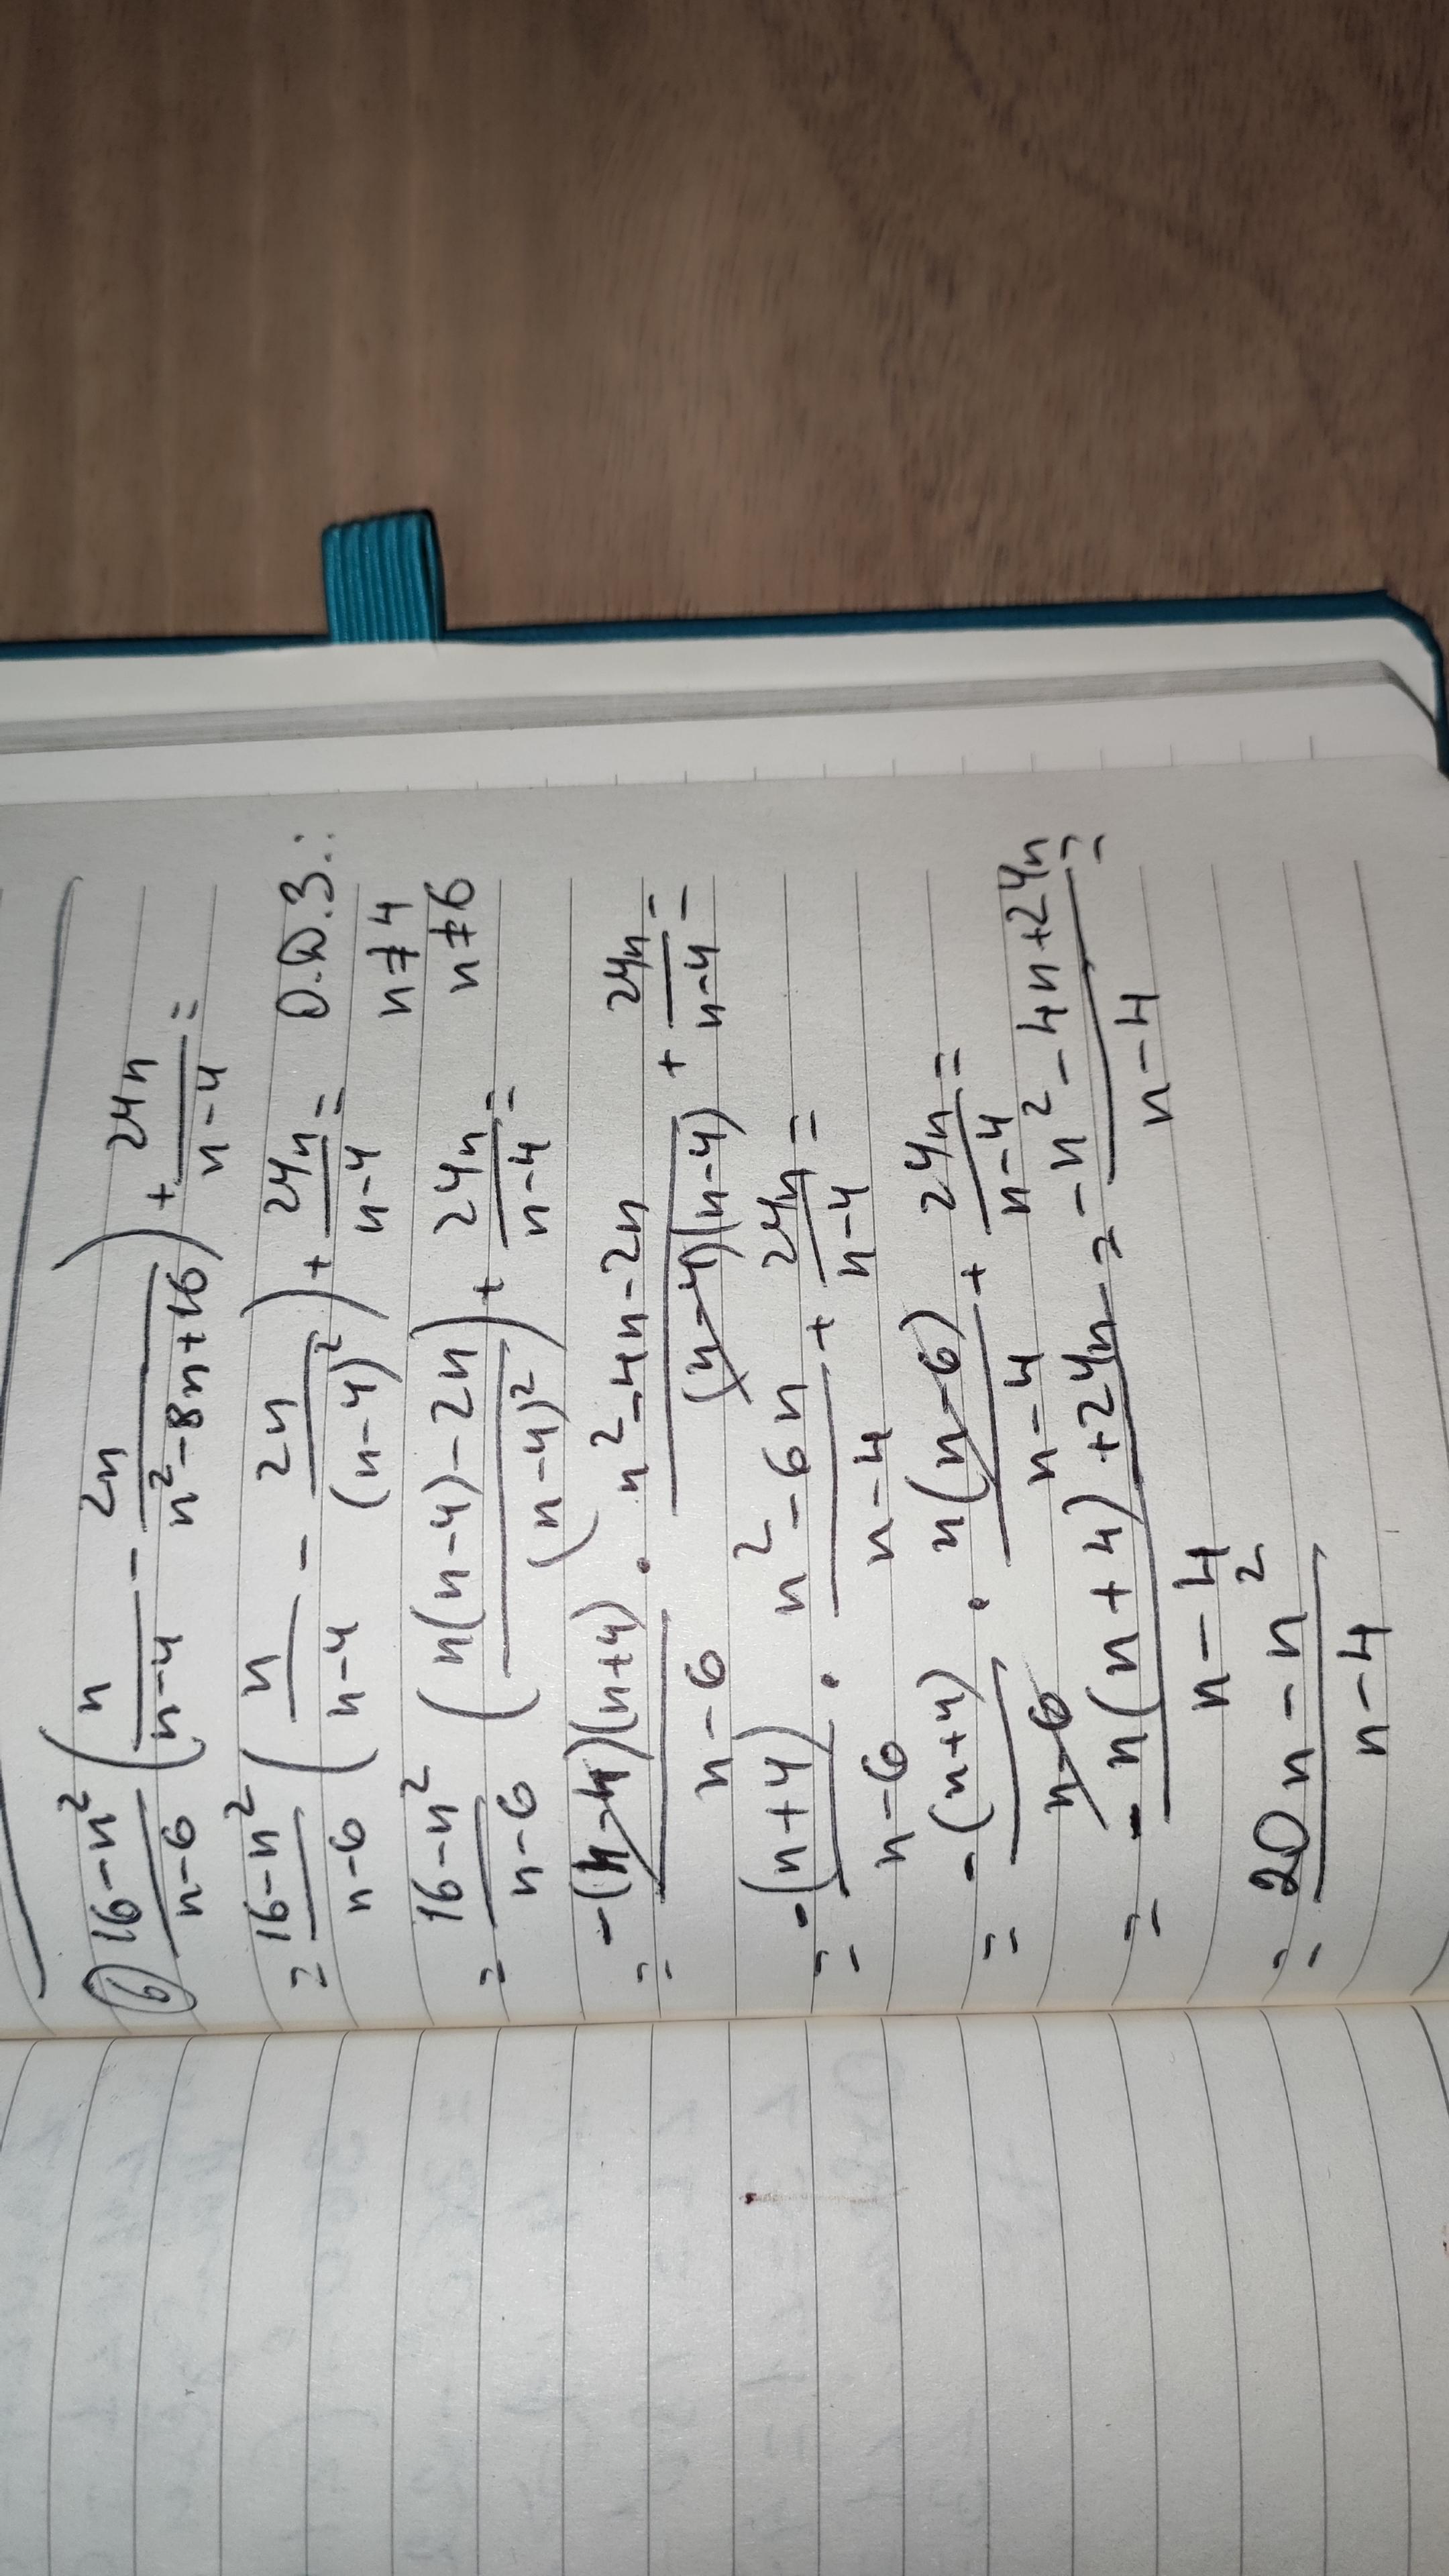 б) (16-n²)/(n-6) (n/(n-4) - 2n/(n²-8n+16)) + 24n/(n-4) =
= (16-n²)/(n-6) (n/(n-4) - 2n/(n-4)²) + 24n/(n-4) = О.Д.З.:
n≠4
= (16-n²)/(n-6) (n(n-4)-2n)/(n-4)²) + 24n/(n-4) = n≠6
= -(n-4)(n+4)/(n-6) · (n²-4n-2n)/((n-4)(n-4)) + 24n/(n-4) =
= -(n+4)/(n-6) · (n²-6n)/(n-4) + 24n/(n-4) =
= -(n+4)/(n-6) · n(n-6)/(n-4) + 24n/(n-4) =
= (-n(n+4)+24n)/(n-4) = (-n²-4n+24n)/(n-4) =
= (20n-n²)/(n-4)